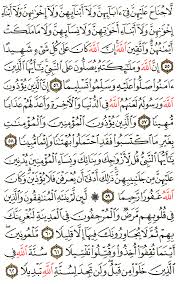 لَّا جُنَاحَ عَلَيْهِنَّ فِىٓ ءَابَآئِهِنَّ وَلَآ أَبْنَآئِهِنَّ وَلَآ إِخْوَٰنِهِنَّ وَلَآ أَبْنَآءِ
إِخْوَٰنِهِنَّ وَلَآ أَبْنَآءِ أَخَوَٰتِهِنَّ وَلَا نِسَآئِهِنَّ وَلَا مَا مَلَكَتْ
أَيْمَٰنُهُنَّ وَٱتَّقِينَ ٱللَّهَ إِنَّ ٱللَّهَ كَانَ عَلَىٰ كُلِّ شَىْءٍ شَهِيدًا
٥٥ إِنَّ ٱللَّهَ وَمَلَٰٓئِكَتَهُۥ يُصَلُّونَ عَلَى ٱلنَّبِىِّ يَٰٓأَيُّهَا ٱلَّذِينَ
ءَامَنُوا۟ صَلُّوا۟ عَلَيْهِ وَسَلِّمُوا۟ تَسْلِيمًا ٥٦ إِنَّ ٱلَّذِينَ يُؤْذُونَ
ٱللَّهَ وَرَسُولَهُۥ لَعَنَهُمُ ٱللَّهُ فِى ٱلدُّنْيَا وَٱلْءَاخِرَةِ وَأَعَدَّ لَهُمْ عَذَابًا
مُّهِينًا ٥٧ وَٱلَّذِينَ يُؤْذُونَ ٱلْمُؤْمِنِينَ وَٱلْمُؤْمِنَٰتِ
بِغَيْرِ مَا ٱكْتَسَبُوا۟ فَقَدِ ٱحْتَمَلُوا۟ بُهْتَٰنًا وَإِثْمًا مُّبِينًا ٥٨
يَٰٓأَيُّهَا ٱلنَّبِىُّ قُل لِّأَزْوَٰجِكَ وَبَنَاتِكَ وَنِسَآءِ ٱلْمُؤْمِنِينَ يُدْنِينَ
عَلَيْهِنَّ مِن جَلَٰبِيبِهِنَّ ذَٰلِكَ أَدْنَىٰٓ أَن يُعْرَفْنَ فَلَا يُؤْذَيْنَ وَكَانَ
ٱللَّهُ غَفُورًا رَّحِيمًا ٥٩ لَّئِن لَّمْ يَنتَهِ ٱلْمُنَٰفِقُونَ وَٱلَّذِينَ
فِى قُلُوبِهِم مَّرَضٌ وَٱلْمُرْجِفُونَ فِى ٱلْمَدِينَةِ لَنُغْرِيَنَّكَ
بِهِمْ ثُمَّ لَا يُجَاوِرُونَكَ فِيهَآ إِلَّا قَلِيلًا ٦٠ مَّلْعُونِينَ
أَيْنَمَا ثُقِفُوٓا۟ أُخِذُوا۟ وَقُتِّلُوا۟ تَقْتِيلًا ٦١ سُنَّةَ ٱللَّهِ فِى
ٱلَّذِينَ خَلَوْا۟ مِن قَبْلُ وَلَن تَجِدَ لِسُنَّةِ ٱللَّهِ تَبْدِيلًا ٦٢